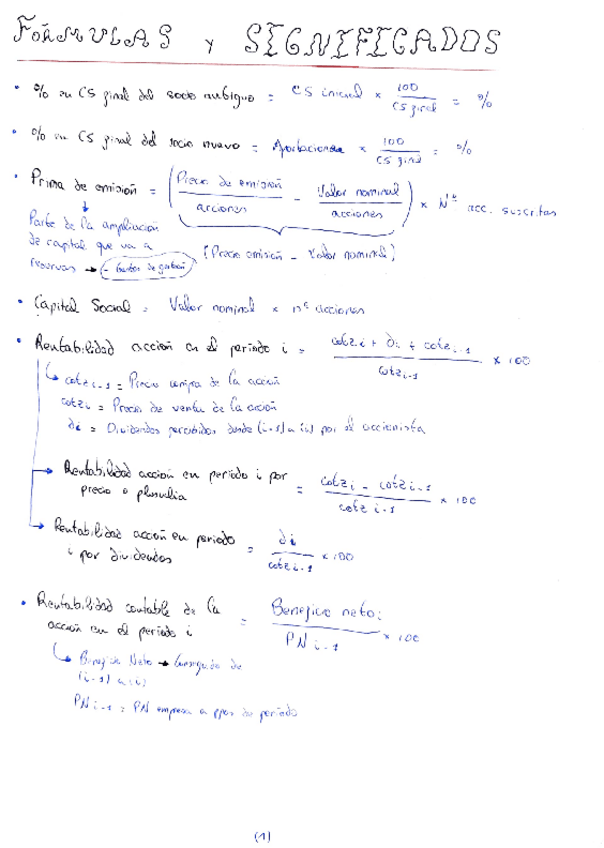 FÓRMULAS Y SIGNIFICADOS
• % en CS final del socio antiguo = CS inicial × 100 / CS final = %
• % en CS final del socio nuevo = Aportaciones × 100 / CS final = %
• Prima de emisión = (Precio de emisión / acciones - Valor nominal / acciones) × Nº acc. suscritas
Parte de la ampliación
de capital que va a
reservas → - Gastos de gestión
(Precio emisión - Valor nominal)
• Capital Social = Valor nominal × nº acciones
• Rentabilidad acción en el periodo i = cotz i + Di + cotz i-1 / cotz i-1 × 100
cotz i-1 = Precio compra de la acción
cotz i = Precio de venta de la acción
di = Dividendos percibidos desde (i-1) a (i) por el accionista
→ Rentabilidad acción en periodo i por
precio o plusvalia = cotz i - cotz i-1 / cotz i-1 × 100
→ Rentabilidad acción en periodo
i por dividendos = di / cotz i-1 × 100
• Rentabilidad contable de la
acción en el periodo i = Beneficio neto i / PN i-1 × 100
Beneficio Neto → Conseguido de
(i-1) a (i)
PN i-1 = PN empresa a ppos de periodo
(1)